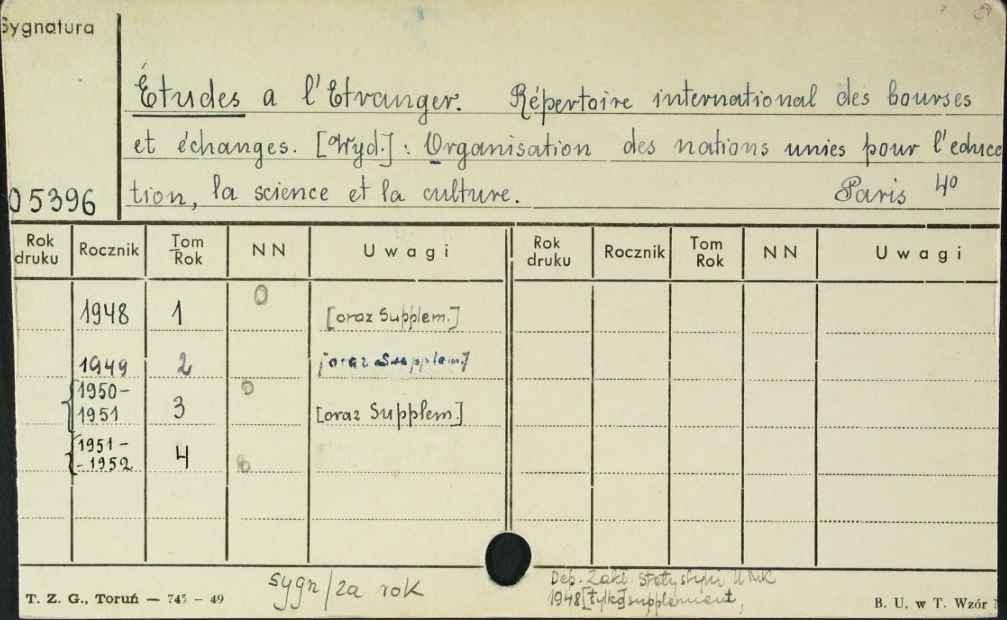 Sygnatura
Études a l'Etranger. Répertoire international des bourses
et échanges. [Wyd.]: Organisation des nations unies pour l'educa
05396 tion, la science et la culture. Paris 4°
Rok druku Rocznik Tom Rok NN Uwagi Rok druku Rocznik Tom Rok NN Uwagi
1948 1 0 [oraz Supplem.]
1949 2 [oraz Supplem.]
1950-1951 3 0 [oraz Supplem.]
1951--1952 4
sygn/za rok
Dep. Zakł. Statystyki UMK
1948 [tylko] supplement,
T. Z. G., Toruń — 745 - 49 B. U. w T. Wzór